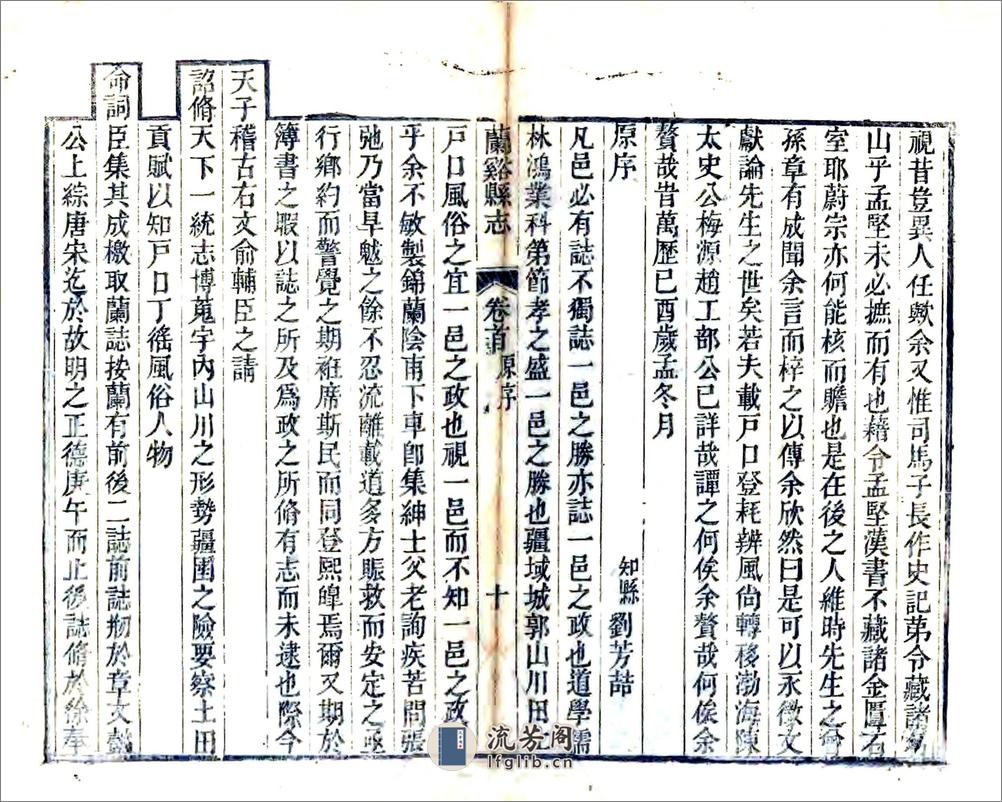 視昔豈異人任歟余又惟司馬子長作史記第令藏諸名
山乎孟堅未必摭而有也藉令孟堅漢書不藏諸金匱石
室耶蔚宗亦何能核而贍也是在後之人維時先生之曾
孫章有成聞余言而梓之以傳余欣然曰是可以永徵文
獻論先生之世矣若夫載戶口登耗辨風尙轉移渤海陳
太史公梅源趙工部公巳詳哉譚之何俟余贅哉何俟余
贅哉旹萬歷巳酉歲孟冬月
原序
知縣劉芳喆
凡邑必有誌不獨誌一邑之勝亦誌一邑之政也道學儒
林鴻業科第節孝之盛一邑之勝也疆域城郭山川田
蘭谿縣志
卷首
原序
十
戶口風俗之宜一邑之政也視一邑而不知一邑之政
乎余不敏製錦蘭陰甫下車卽集紳士父老詢疾苦問張
弛乃當旱魃之餘不忍流離載道多方賑救而安定之亟
行鄉約而警覺之期袵席斯民而同登熙皡焉爾又期於
簿書之暇以誌之所及爲政之所脩有志而未逮也際今
天子稽古右文俞輔臣之請
詔脩天下一統志博蒐宇內山川之形勢疆圉之險要察土田
貢賦以知戶口丁徭風俗人物
命詞臣集其成檄取蘭誌按蘭有前後二誌前誌剏於章文懿
公上綜唐宋迄於故明之正德庚午而止後誌脩於徐奉
流芳阁
lfglib.cn